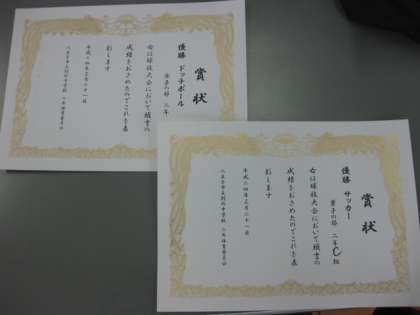 賞状
優勝 ドッチボール
女子の部 二年
右は球技大会において頭書の
成績をおさめたのでこれを表
彰します
平成二四年三月二十一日
賞状
優勝 サッカー
男子の部 二年C組
右は球技大会において頭書の
成績をおさめたのでこれを表
彰します
平成二四年三月二十一日